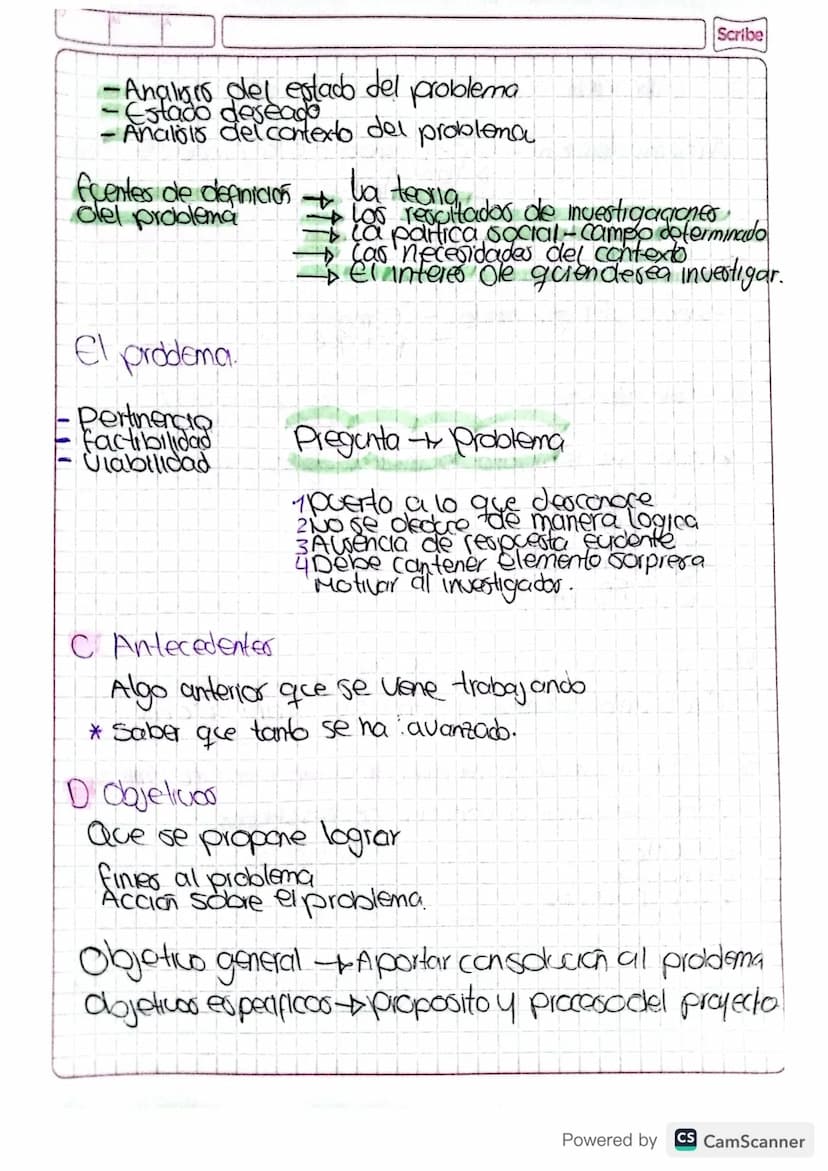 Scribe
- Analisis del estado del problema
- Estado deseado
- Analisis del contexto del problema
fuentes de definicion → La teoria,
del problema → Los resultados de investigaciones,
→ La partica social - campo determinado
→ Las necesidades del contexto
→ El interes de quien desea investigar.
El problema.
- Pertinencia
- factibilidad
- Viabilidad
Pregunta → problema
1 puerto a lo que desconoce
2 No se deduce de manera logica
3 Ausencia de respuesta evidente
4 Debe contener elemento sorpresa
Motivar al investigador.
C Antecedentes
Algo anterior que se viene trabajando
* Saber que tanto se ha avanzado.
D Objetivos
Que se propone lograr
fines al problema
Acción sobre el problema.
Objetivo general → Aportar con solución al problema
objetivos especificos → proposito y proceso del proyecto
Powered by CS CamScanner